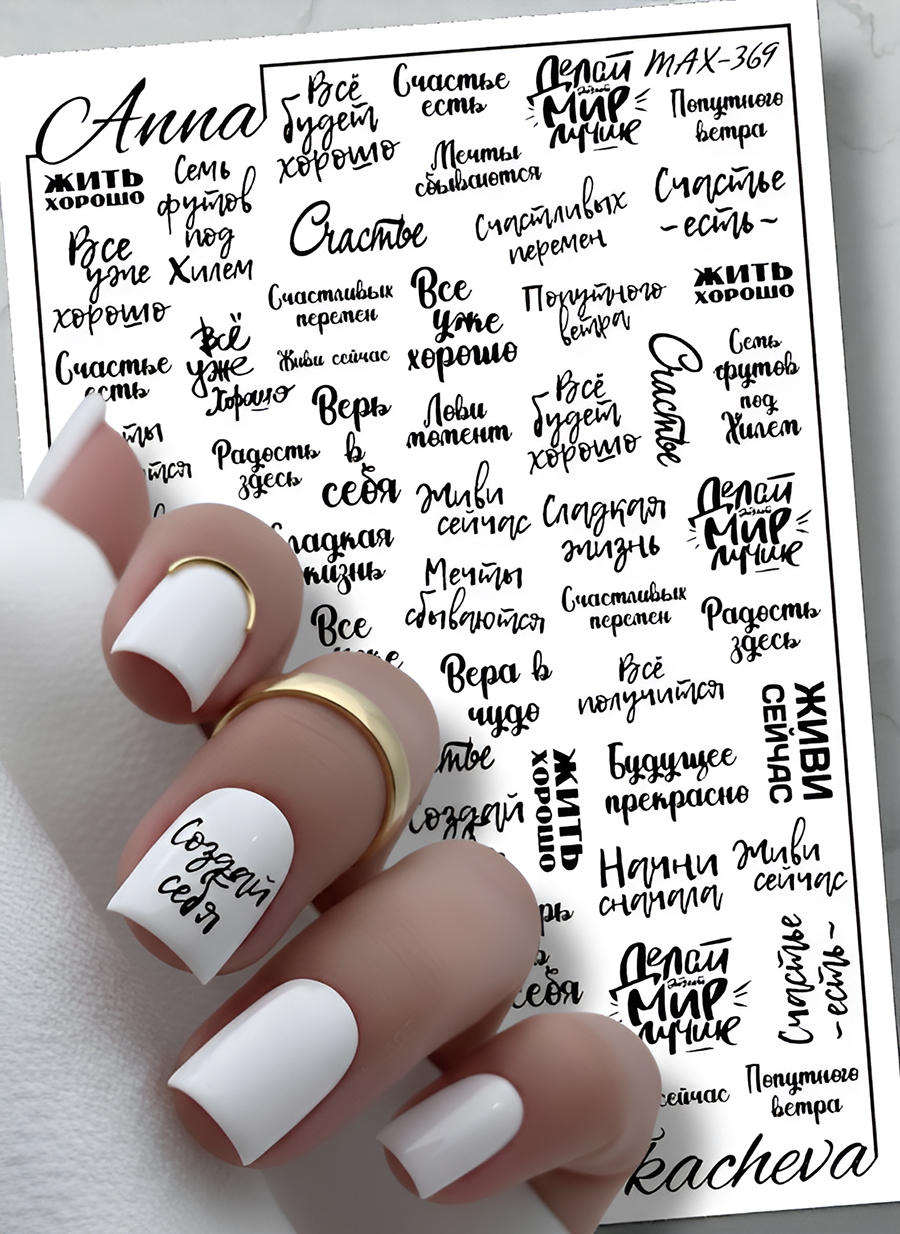 Anna
MAX-369
Всё
будет
хорошо
Счастье
есть
Делай
Мир
лучше
Попутного
ветра
Мечты
сбываются
ЖИТЬ
ХОРОШО
Семь
футов
под
Килем
Счастье
Счастливых
перемен
Счастье
~есть~
Все
уже
хорошо
Счастливых
перемен
Все
уже
хорошо
Попутного
ветра
ЖИТЬ
ХОРОШО
Счастье
есть
Всё
уже
Хорошо
Живи сейчас
Верь
в
себя
Лови
момент
Всё
будет
хорошо
Счастье
Семь
футов
под
Килем
Радость
здесь
Живи
сейчас
Сладкая
жизнь
Делай
Мир
лучше
Мечты
сбываются
Счастливых
перемен
Радость
здесь
Все
Вера в
чудо
Всё
получится
ЖИВИ
СЕЙЧАС
ЖИТЬ
ХОРОШО
Будущее
прекрасно
Создай
себя
Начни
сначала
Живи
сейчас
себя
Делай
Мир
лучше
Счастье
~есть~
сейчас
Попутного
ветра
kacheva